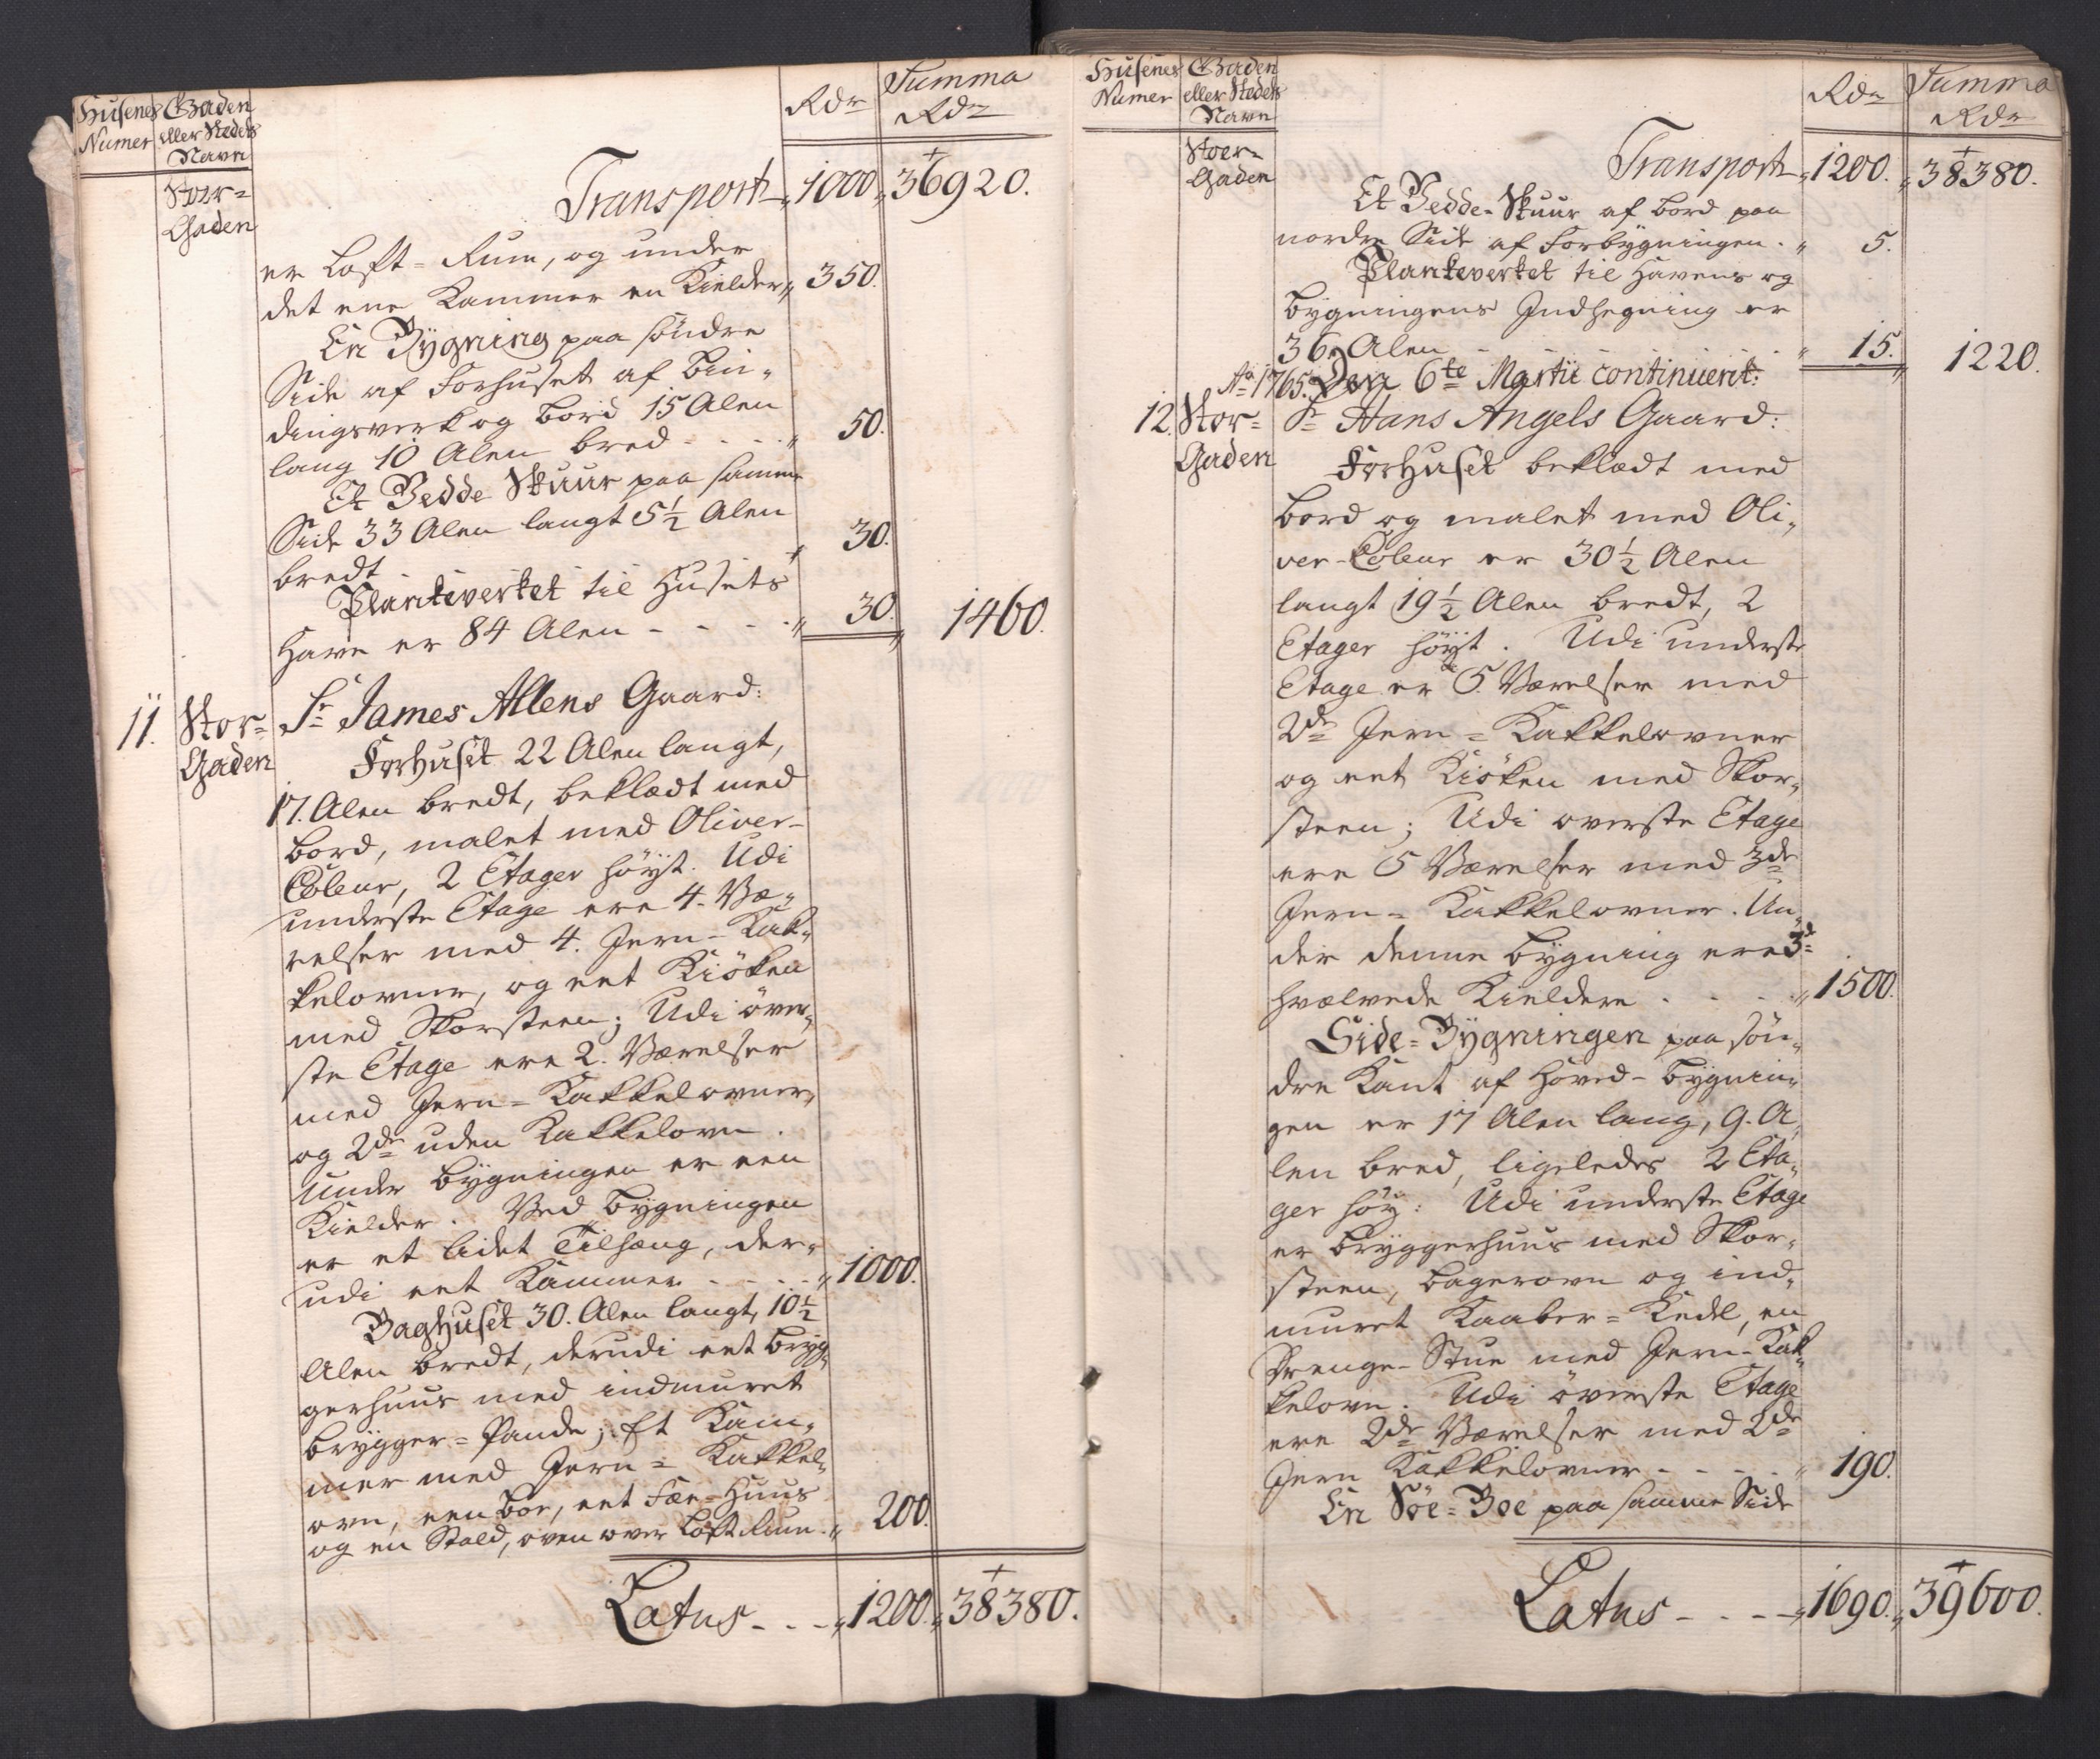 Husenes Gaden Rdr Summa
Numer eller Stedets Rdr
Navn
Stoer=
Gaden
Transport „ 1000 „ 36920.
er Loft=Rum, og under
det ene Kammer en Kielder „ 350.
En Bÿgning paa söndre
Side af Forhuset af Bin„
dingsverk og Bord 15 Alen
lang 10 Alen bred - - - „ 50.
Et Vedde Skuur paa samme
Side 33 Alen langt 5½ Alen
bredt - - - „ 30.
Plankeverket til Husets
Have er 84 Alen - - - - „ 30. „ 1460.
11. Stor= Sr James Allens Gaard:
Gaden Forhuset 22 Alen langt,
17. Alen bredt, beklædt med
Bord, malet med Oliver-
Coleur, 2 Etager höÿt. Udi
underste Etage ere 4. Væ„
relser med 4. Jern-Kak„
kelovner, og eet Kiöken
med Skorsteen; Udi över„
ste Etage ere 2. Værelser
med Jern=Kakkelovner,
og 2de uden Kakkelovn.
Under Bÿgningen er een
Kielder. Ved Bÿgningen
er et lidet Tilhæng, der„
udi eet Kammer - - - - „ 1000.
Baghuset 30. Alen langt, 10½
Alen bredt, derudi eet Brÿg„
gerhuus med indmuret
Brÿgger=Pande; Et Kam„
mer med Jern=Kakkel„
ovn, een Boe, eet Fæe-Huus
og en Stald, oven over Loft Rum. „ 200.
Latus - - - „ 1200. „ 38380.
Husenes Gaden Rdr Summa
Numer eller Stedets Rdr
Navn
Stoer=
Gaden
Transport „ 1200. „ 38380.
Et Vedde-Skuur af Bord paa
nordre Side af Forbÿgningen. „ 5.
Plankeverket til Havens og
Bÿgningens Indhegning er
36. Alen - - - - - - „ 15. „ 1220.
Ao 1765. Den 6te Martii continuerit:
12. Stor= Sr Hans Angels Gaard:
Gaden Forhuset beklædt med
Bord og malet med Oli„
ver-Coleur er 30½ Alen
langt 19½ Alen bredt, 2
Etager höÿt. Udi underste
Etage er 5. Værelser med
2de Jern=Kakkelovner
og eet Kiöken med Skor„
steen; Udi overste Etage
ere 5 Værelser med 3de
Jern=Kakkelovner. Un„
der denne Bÿgning ere 3de
hvælvede Kieldere - - - „ 1500.
Side=Bÿgningen paa sön„
dre Kant af Hoved-Bÿgnin„
gen er 17 Alen lang, 9. A„
len bred, ligeledes 2 Eta„
ger höÿ: Udi underste Etage
er Brÿggerhuus med Skor„
steen, Bagerovn og ind„
muret Kaaber=Kedel, en
Drenge-Stue med Jern-Kak„
kelovn. Udi överste Etage
ere 2de Værelser med 2de
Jern Kakkelovner - - - - „ 190.
En Söe=Boe paa samme Side
Latus - - - - „ 1690. „ 39600.